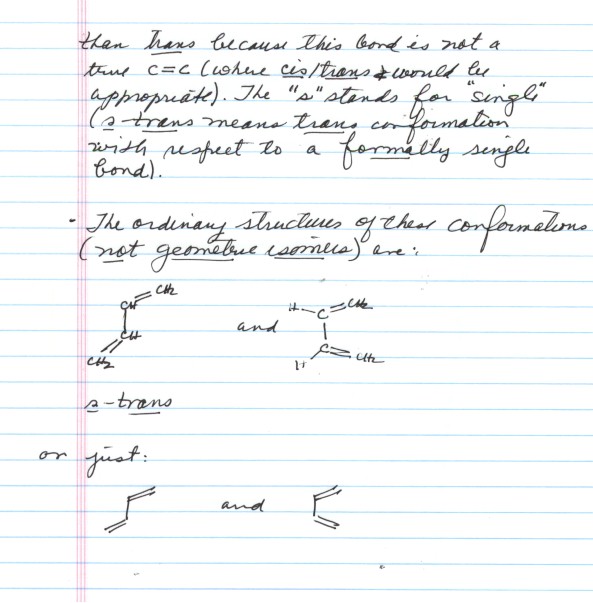 than trans because this bond is not a
true C=C (where cis/trans would be
appropriate). The "s" stands for "single"
(s-trans means trans conformation
with respect to a formally single
bond).
- The ordinary structures of these conformations
(not geometric isomers) are:
CH CH2
CH
CH2
and
H-C CH2
C CH2
H
s-trans
or just:
and